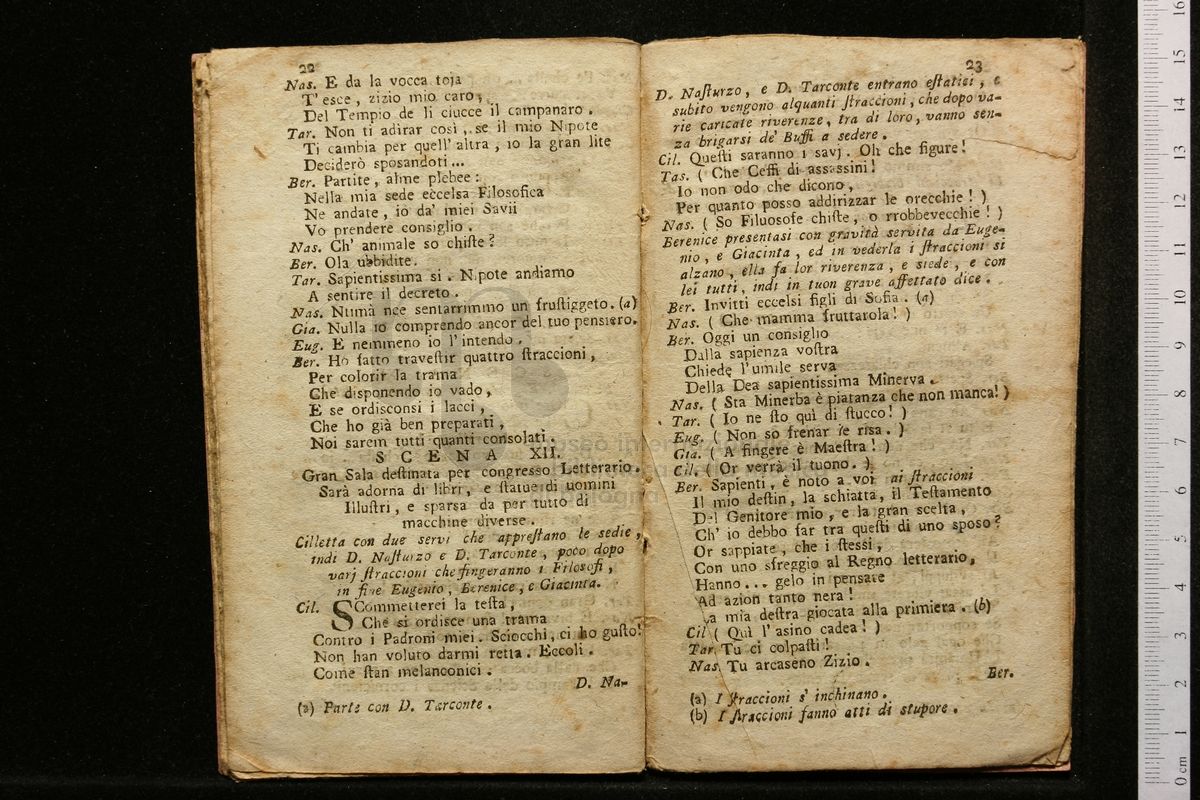 22
Nas. E da la vocca toja
T' esce, zizio mio caro,
Del Tempio de li ciucce il campanaro.
Tar. Non ti adirar così, se il mio Nipote
Ti cambia per quell' altra, io la gran lite
Deciderò sposandoti...
Ber. Partite, alme plebee:
Nella mia sede eccelsa Filosofica
Ne andate, io da' miei Savii
Vo prendere consiglio.
Nas. Ch' animale so chiste?
Ber. Ola ubbidite.
Tar. Sapientissima si. Nipote andiamo
A sentire il decreto.
Nas. Ntimà nce sentarrimmo un frustiggeto. (a)
Gia. Nulla io comprendo ancor del tuo pensiero.
Eug. E nemmeno io l' intendo.
Ber. Ho fatto travestir quattro straccioni,
Per colorir la trama
Che disponendo io vado,
E se ordisconsi i lacci,
Che ho già ben preparati,
Noi sarem tutti quanti consolati.
SCENA XII.
Gran Sala destinata per congresso Letterario.
Sarà adorna di libri, e statue di uomini
Illustri, e sparsa da per tutto di
macchine diverse.
Cilletta con due servi che apprestano le sedie,
indi D. Nasturzo e D. Tarconte, poco dopo
varj straccioni che fingeranno i Filosofi,
in fine Eugenio, Berenice, e Giacinta.
Cil. SCommetterei la testa,
Che si ordisce una trama
Contro i Padroni miei. Sciocchi, ci ho gusto!
Non han voluto darmi retta. Eccoli.
Come stan melanconici.
D. Na-
(a) Parte con D. Tarconte.
23
D. Nasturzo, e D. Tarconte entrano estatici, e
subito vengono alquanti straccioni, che dopo va-
rie caricate riverenze, tra di loro, vanno sen-
za brigarsi de' Buffi a sedere.
Cil. Questi saranno i savj. Oh che figure!
Tas. ( Che Ceffi di assassini!
Io non odo che dicono,
Per quanto posso addirizzar le orecchie! )
Nas. ( So Filuosofe chiste, o rrobbevecchie! )
Berenice presentasi con gravità servita da Euge-
nio, e Giacinta, ed in vederla i straccioni si
alzano, ella fa lor riverenza, e siede, e con
lei tutti, indi in tuon grave affettato dice.
Ber. Invitti eccelsi figli di Sofia. (a)
Nas. ( Che mamma fruttarola! )
Ber. Oggi un consiglio
Dalla sapienza vostra
Chiede l'umile serva
Della Dea sapientissima Minerva.
Nas. ( Sta Minerba è piatanza che non manca! )
Tar. ( Io ne sto quì di stucco! )
Eug. ( Non so frenar le risa. )
Gia. ( A fingere è Maestra! )
Cil. ( Or verrà il tuono. )
Ber. Sapienti, è noto a voi ai straccioni
Il mio destin, la schiatta, il Testamento
Del Genitore mio, e la gran scelta,
Ch' io debbo far tra questi di uno sposo?
Or sappiate, che i stessi,
Con uno sfreggio al Regno letterario,
Hanno... gelo in pensare
Ad azion tanto nera!
La mia destra giocata alla primiera. (b)
Cil. ( Quì l' asino cadea! )
Tar. Tu ci colpasti!
Nas. Tu arcaseno Zizio.
Ber.
(a) I straccioni s' inchinano.
(b) I straccioni fanno atti di stupore.